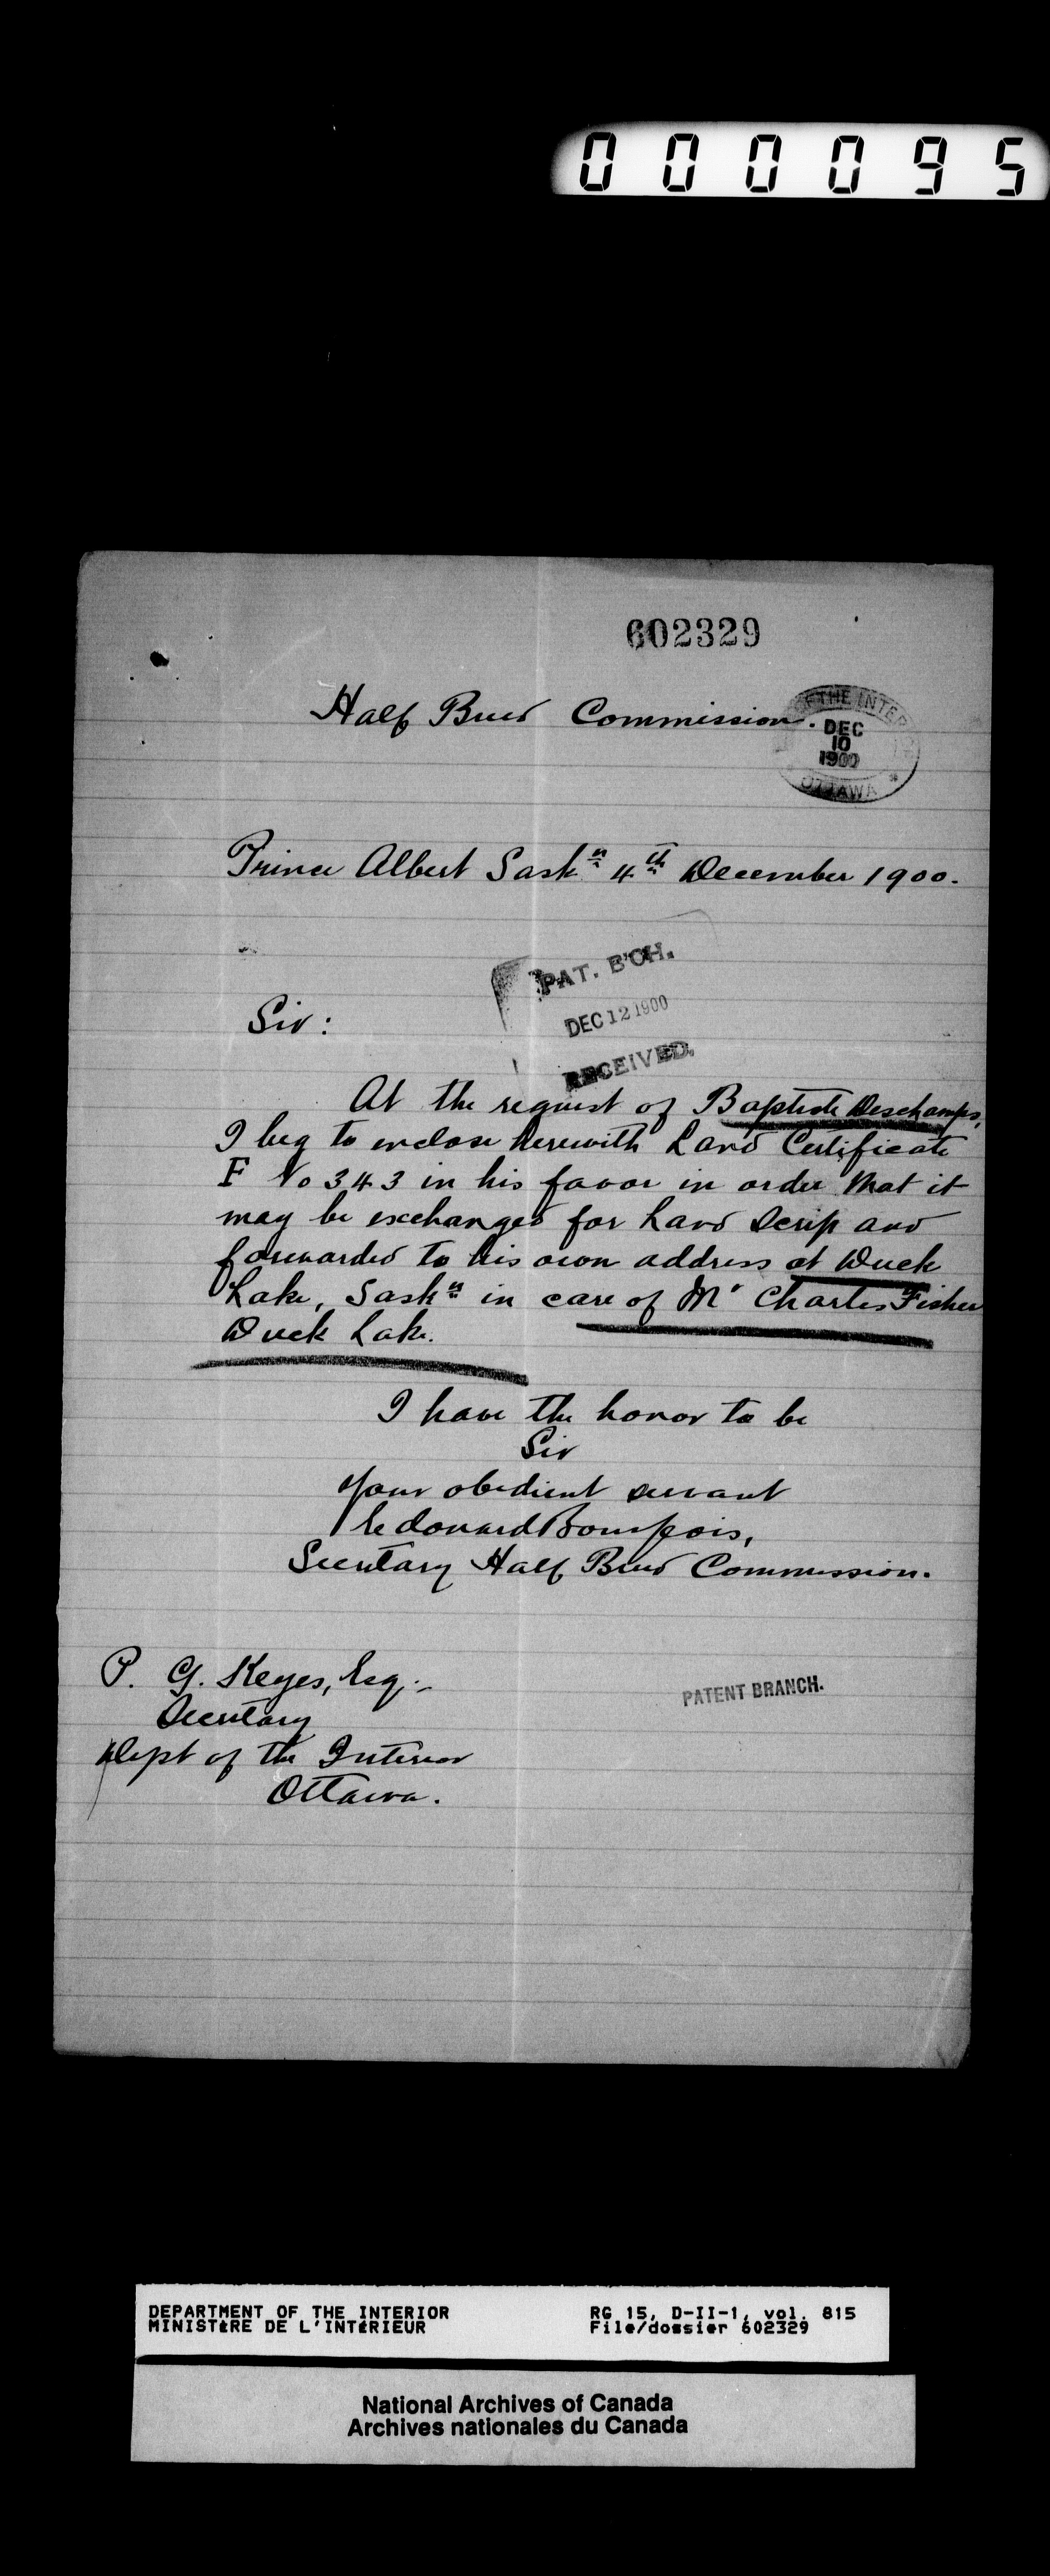 000095
602329
Half Breed Commission.
OF THE INTER
DEC
10
1900
OTTAWA
Prince Albert Saskn 4th December 1900.
PAT. B'CH.
DEC 12 1900
RECEIVED.
Sir:
At the request of Baptiste Deschamps,
I beg to enclose herewith Land Certificate
F No 343 in his favor in order that it
may be exchanged for Land Scrip and
forwarded to his own address at Duck
Lake, Saskn in care of Mr Charles Fisher
Duck Lake.
I have the honor to be
Sir
your obedient servant
Edouard Bourgeois,
Secretary Half Breed Commission.
P. G. Keyes, Esq.
Secretary
Dept of the Interior
Ottawa.
PATENT BRANCH.
DEPARTMENT OF THE INTERIOR
MINISTÈRE DE L'INTÉRIEUR
RG 15, D-II-1, vol. 815
File/dossier 602329
National Archives of Canada
Archives nationales du Canada